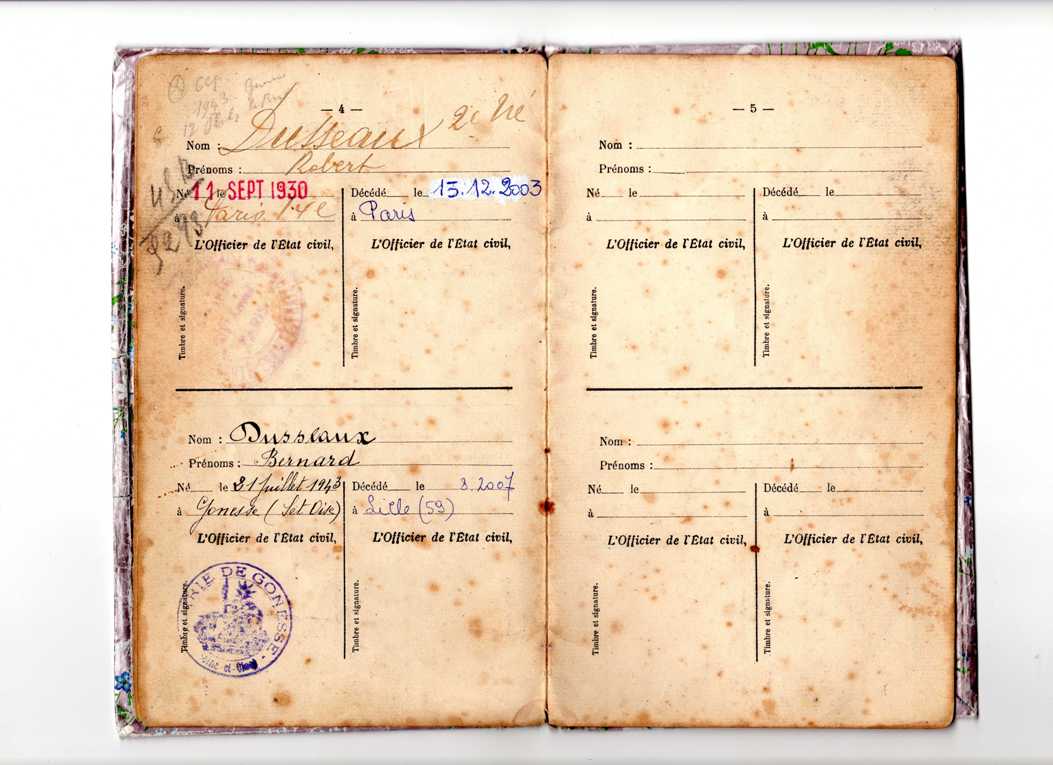 — 4 —
Nom : Dusseaux
Prénoms : Robert
Né le 11 SEPT 1930
à Paris 14e
Décédé le 13.12.2003
à Paris
L'Officier de l'État civil,
L'Officier de l'État civil,
Timbre et signature.
Timbre et signature.
Nom : Dusseaux
Prénoms : Bernard
Né le 21 Juillet 1943
à Gonesse (S et Oise)
Décédé le 8.2007
à Lille (59)
L'Officier de l'État civil,
L'Officier de l'État civil,
Timbre et signature.
Timbre et signature.
MAIRIE DE GONESSE
— 5 —
Nom :
Prénoms :
Né le
à
Décédé le
à
L'Officier de l'État civil,
L'Officier de l'État civil,
Timbre et signature.
Timbre et signature.
Nom :
Prénoms :
Né le
à
Décédé le
à
L'Officier de l'État civil,
L'Officier de l'État civil,
Timbre et signature.
Timbre et signature.